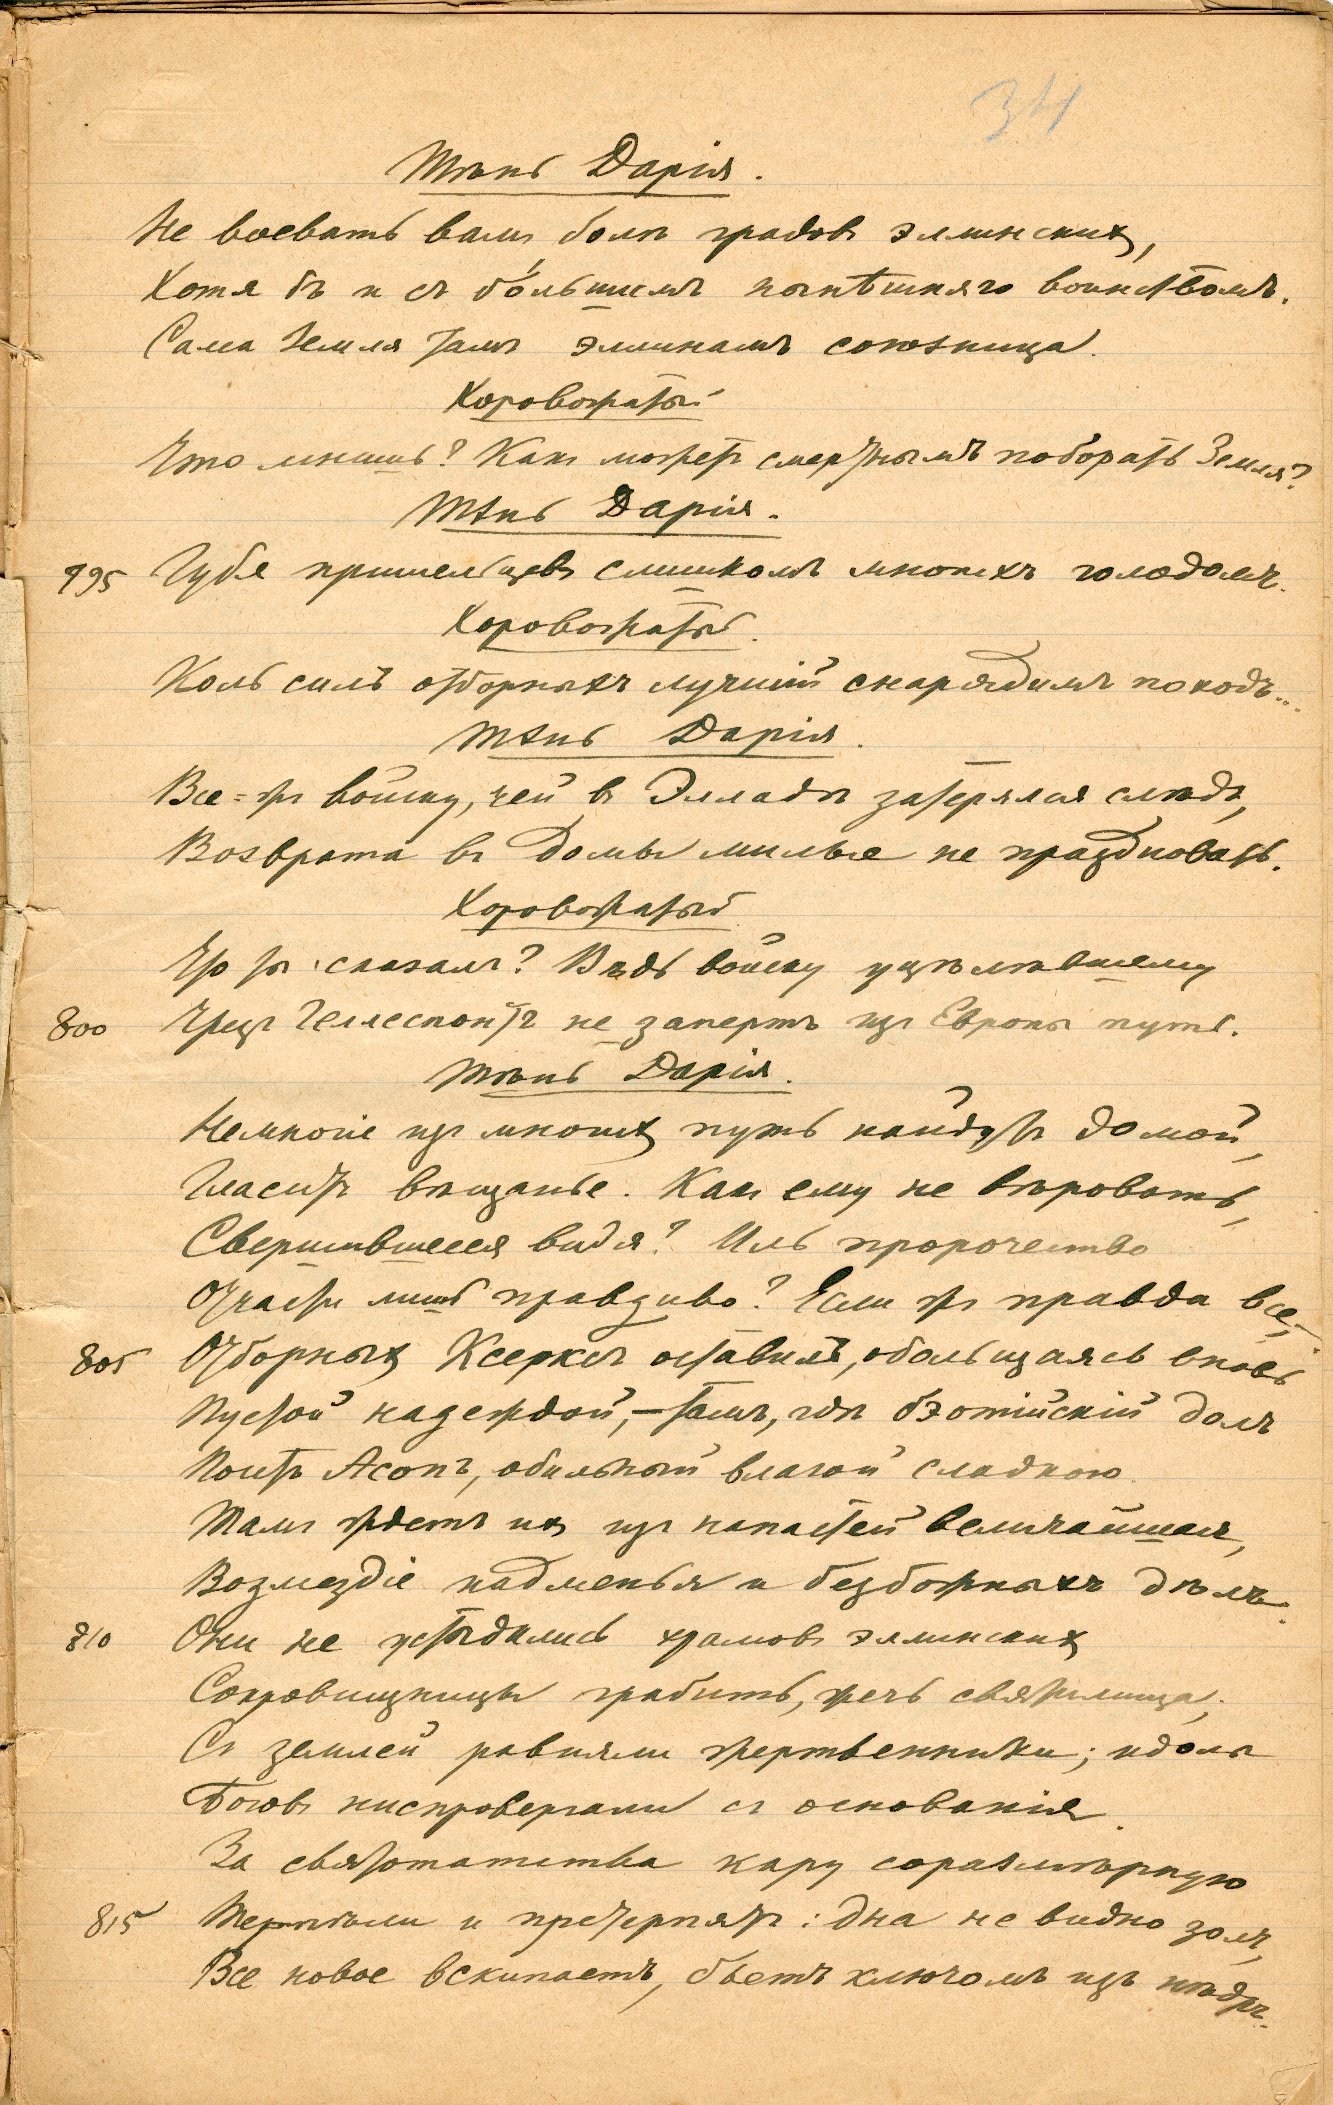 34
Тѣнь Дарія.
Не воевать вамъ болѣ градовъ эллинскихъ,
Хотя бъ и съ бо́льшимъ нынѣшняго воинствомъ.
Сама Земля тамъ эллинамъ союзница.
Хоровожатый
Что мнишь? Какъ можетъ смертнымъ поборать Земля?
Тѣнь Дарія.
795 Губя пришельцевъ слишкомъ многихъ голодомъ.
Хоровожатый.
Коль силъ отборныхъ лучшій снарядимъ походъ...
Тѣнь Дарія.
Все-жъ войску, чей въ Элладѣ затерялся слѣдъ,
Возврата въ домы милые не праздновать.
Хоровожатый
Что ты сказалъ? Вѣдь войску уцѣлѣвшему
800 Чрезъ Геллеспонтъ не запертъ изъ Европы путь.
Тѣнь Дарія.
Немногіе изъ многихъ путь найдутъ домой,
Гласитъ вѣщанье. Какъ ему не вѣровать,
Свершившееся видя? Иль пророчество
Отчасти лишь правдиво? Если жъ правда все,—
805 Отборныхъ Ксерксъ оставилъ, обольщаясь вновь
Пустой надеждой,—тамъ, гдѣ бэотійскій долъ
Поитъ Асопъ, обильный влагой сладкою.
Тамъ ждетъ ихъ изъ напастей величайшая,
Возмездіе надменья и безбожныхъ дѣлъ.
810 Они не устыдились храмовъ эллинскихъ
Сокровищницы грабить, жечь святилища;
Съ землей ровняли жертвенники; идолы
Боговъ ниспровергали съ основанія.
За святотатства кару соразмѣрную
815 Терпѣли и претерпятъ: дна не видно золъ,
Все новое вскипаетъ, бьетъ ключомъ изъ нѣдръ.